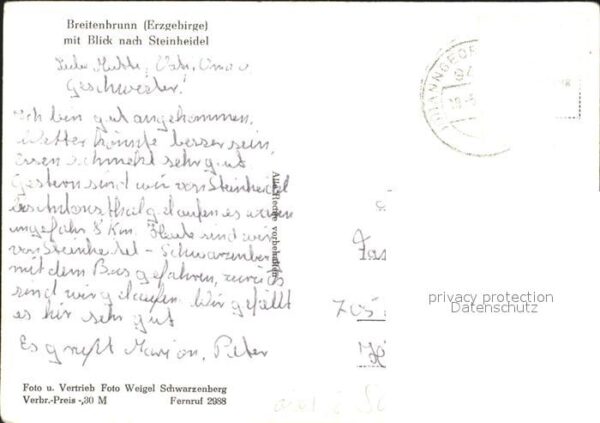 Breitenbrunn (Erzgebirge)
mit Blick nach Steinheidel
Liebe Mutti, Vati, Oma u.
Geschwester!
Ich bin gut angekommen.
Wetter könnte besser sein,
Essen schmekt sehr gut
Gestern sind wir von Steinheidel
bis Antonsthal gelaufen es waren
ungefähr 8 Km. Heute sind wir
von Steinheidel - Schwarzenberg
mit dem Bus gefahren, zurück
sind wir gelaufen. Wir gefällt
es hir sehr gut
Es grüßt Marion, Peter
Alle Rechte vorbehalten
Foto u. Vertrieb Foto Weigel Schwarzenberg
Verbr.-Preis -,30 M Fernruf 2988
JOHANNGEOR
705
privacy protection
Datenschutz